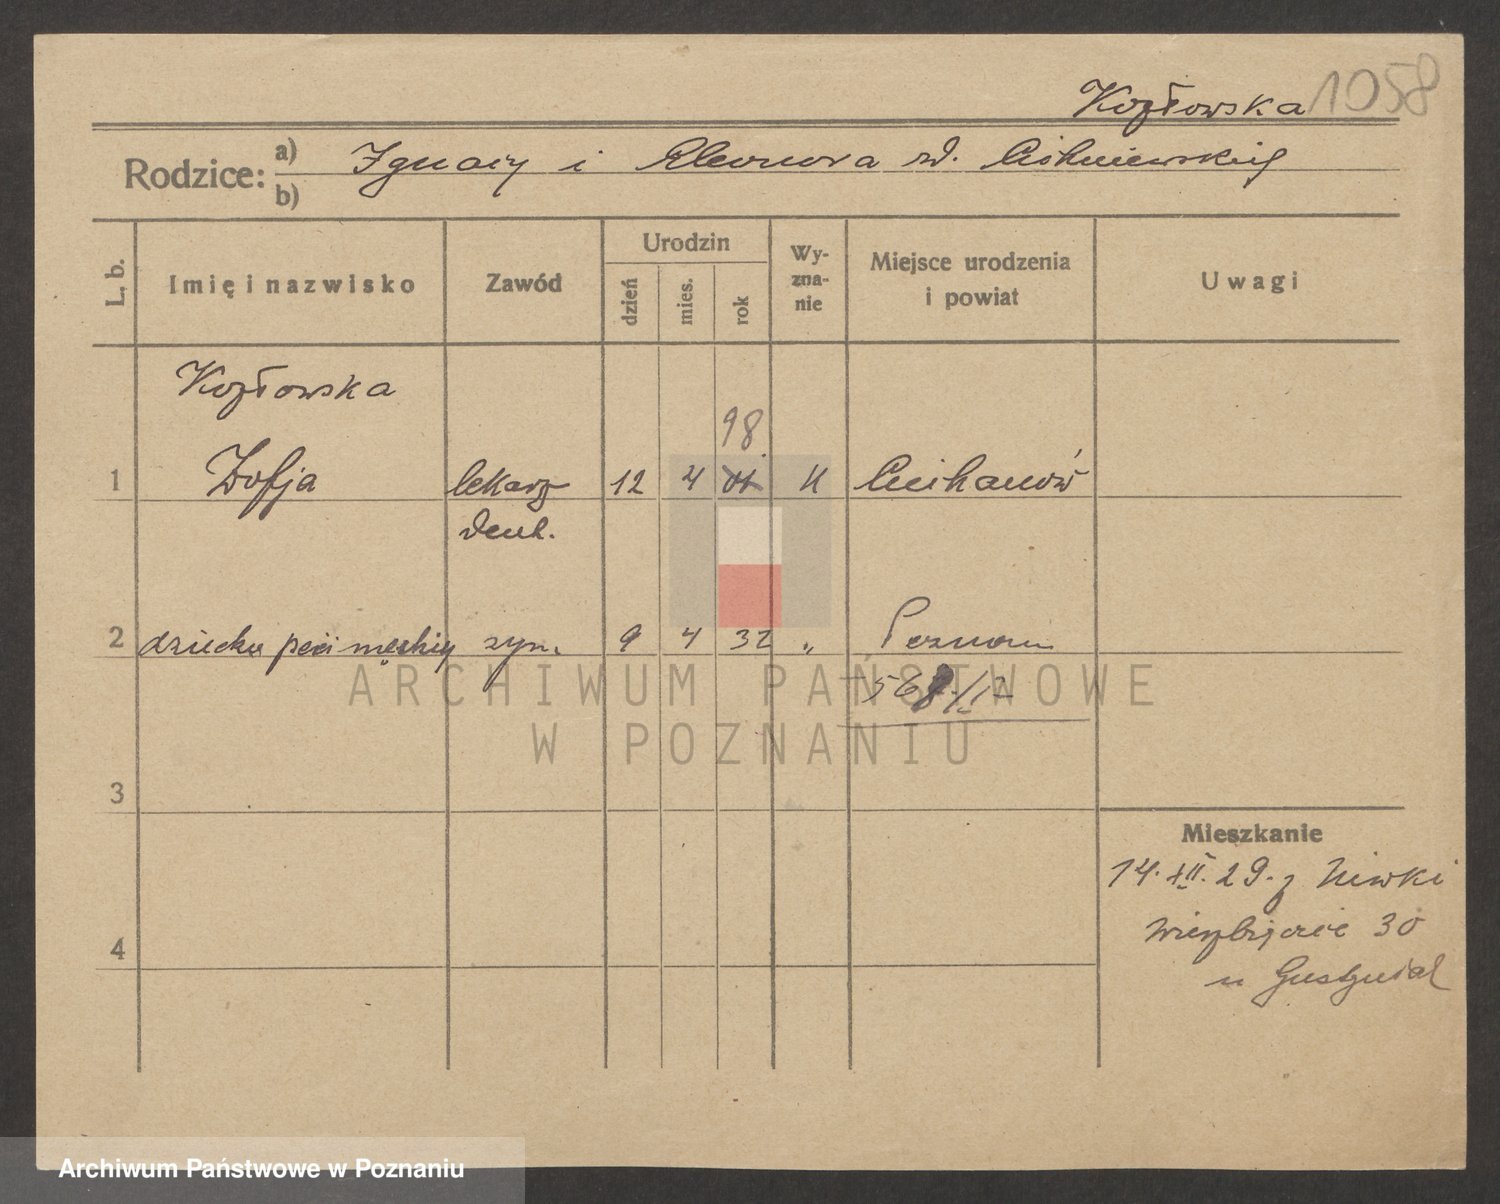 Kozłowska 1058
Rodzice: a) Ignacy i Eleonora zd.
b)
L. b. Imię i nazwisko Zawód Urodzin dzień mies. rok Wy-zna-nie Miejsce urodzenia i powiat Uwagi
Kozłowska
98
1 Zofja lekarz 12 4 K Ciechanów
dent.
2 dziecko płci męskiej syn. 9 4 32 „ Poznań
ARCHIWUM PAŃSTWOWE
W POZNANIU
3
Mieszkanie
14. XII. 29. z Niwki
4 Wierzbięcice 30
u
Archiwum Państwowe w Poznaniu